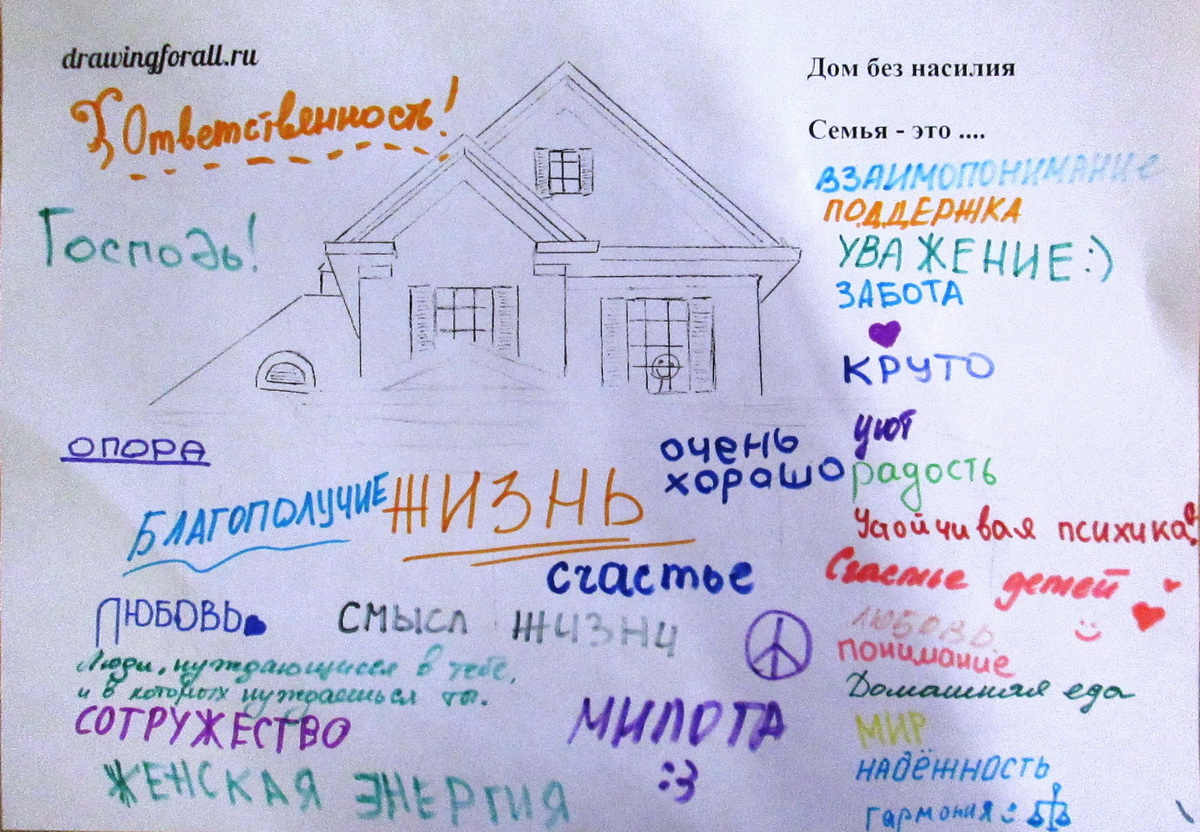 drawingforall.ru
Дом без насилия
Семья - это ....
Ответственность!
Господь!
ВЗАИМОПОНИМАНИЕ
ПОДДЕРЖКА
УВАЖЕНИЕ:)
ЗАБОТА
КРУТО
уют
радость
Устойчивая психика!
Счастье детей
ЛЮБОВЬ
понимание
Домашняя еда
МИР
НАДЁЖНОСТЬ
гармония
ОПОРА
БЛАГОПОЛУЧИЕ
ЖИЗНЬ
очень
хорошо
счастье
ЛЮБОВЬ
СМЫСЛ ЖИЗНИ
Люди, нуждающиеся в тебе,
и в которых нуждаешься ты.
СОТРУЖЕСТВО
МИЛОТА
:3
ЖЕНСКАЯ ЭНЕРГИЯ